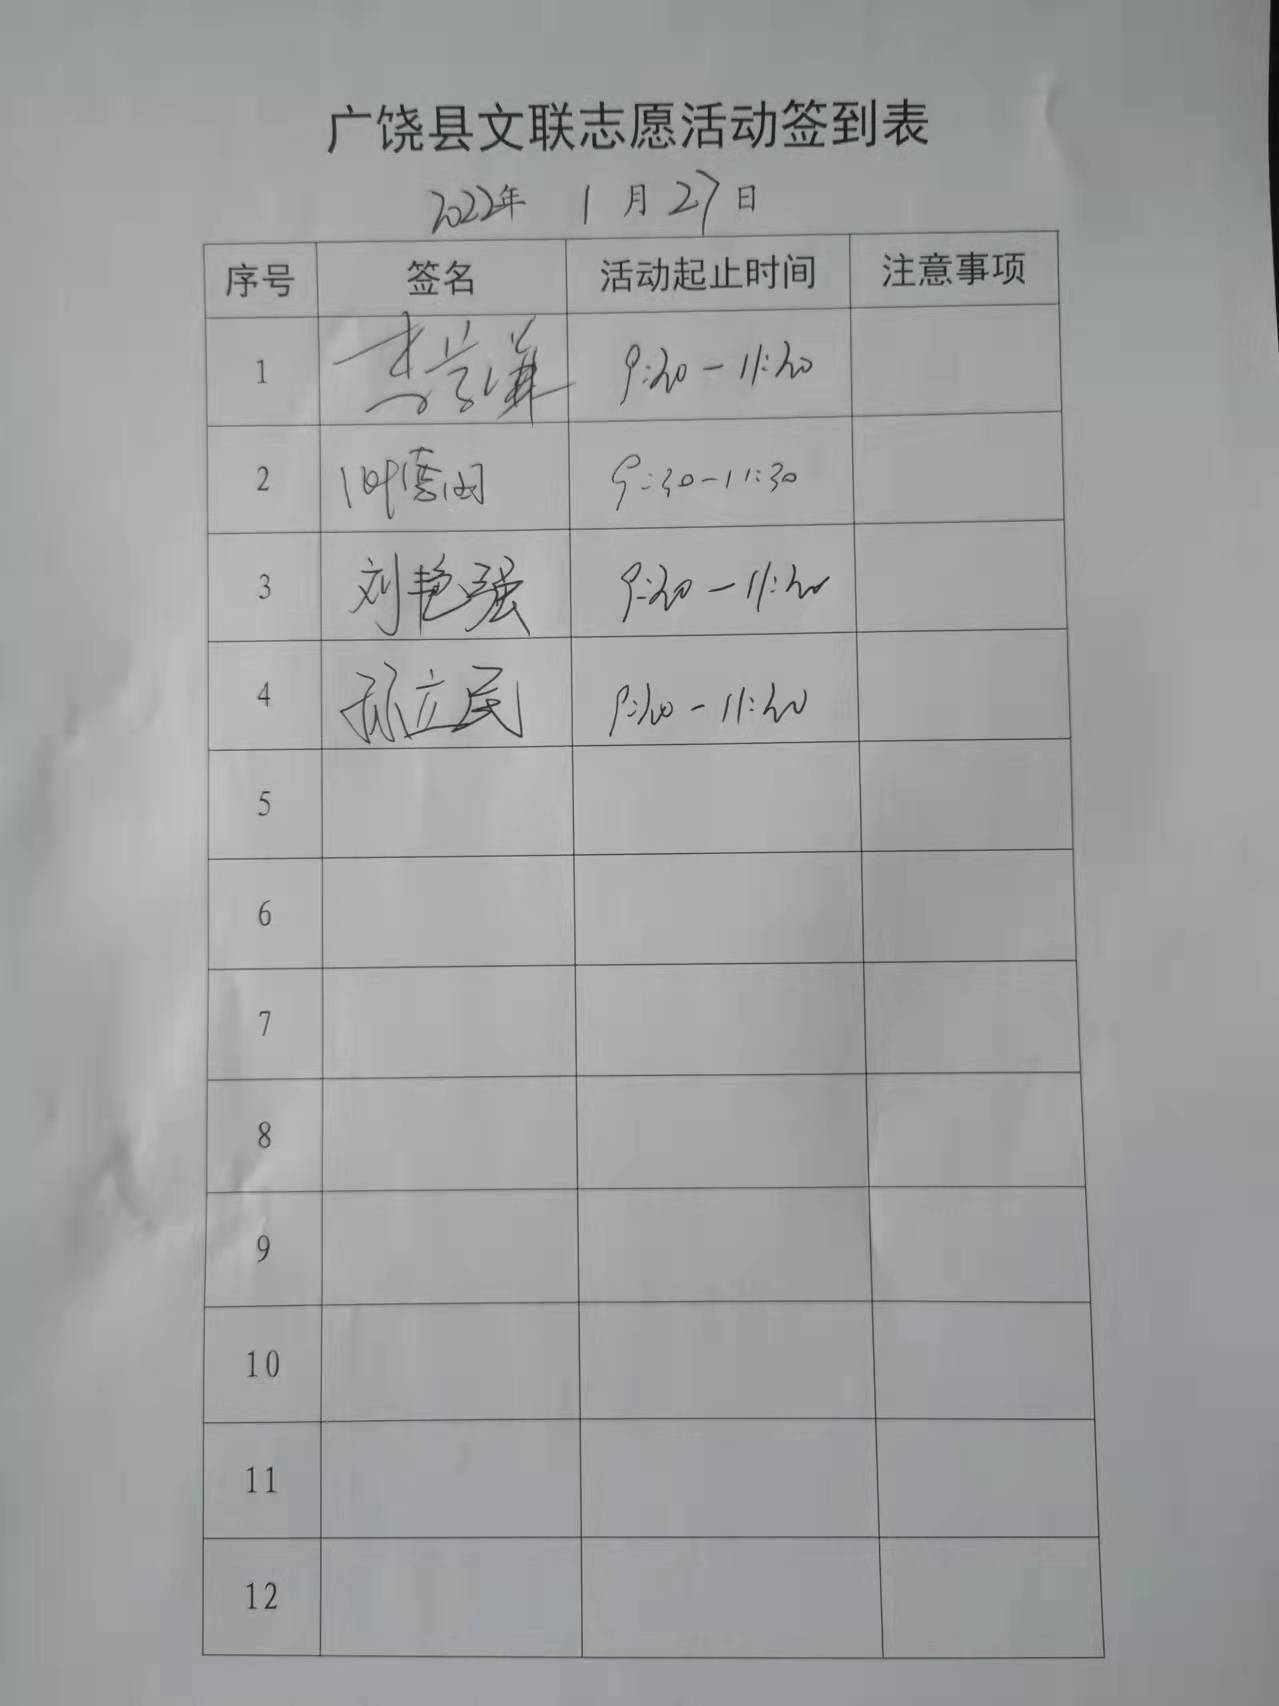 广饶县文联志愿活动签到表
2022年 1月27日
序号 签名 活动起止时间 注意事项
1 李 9:20-11:20
2 9:30-11:30
3 刘艳强 9:20-11:20
4 孙立民 9:20-11:20
5
6
7
8
9
10
11
12